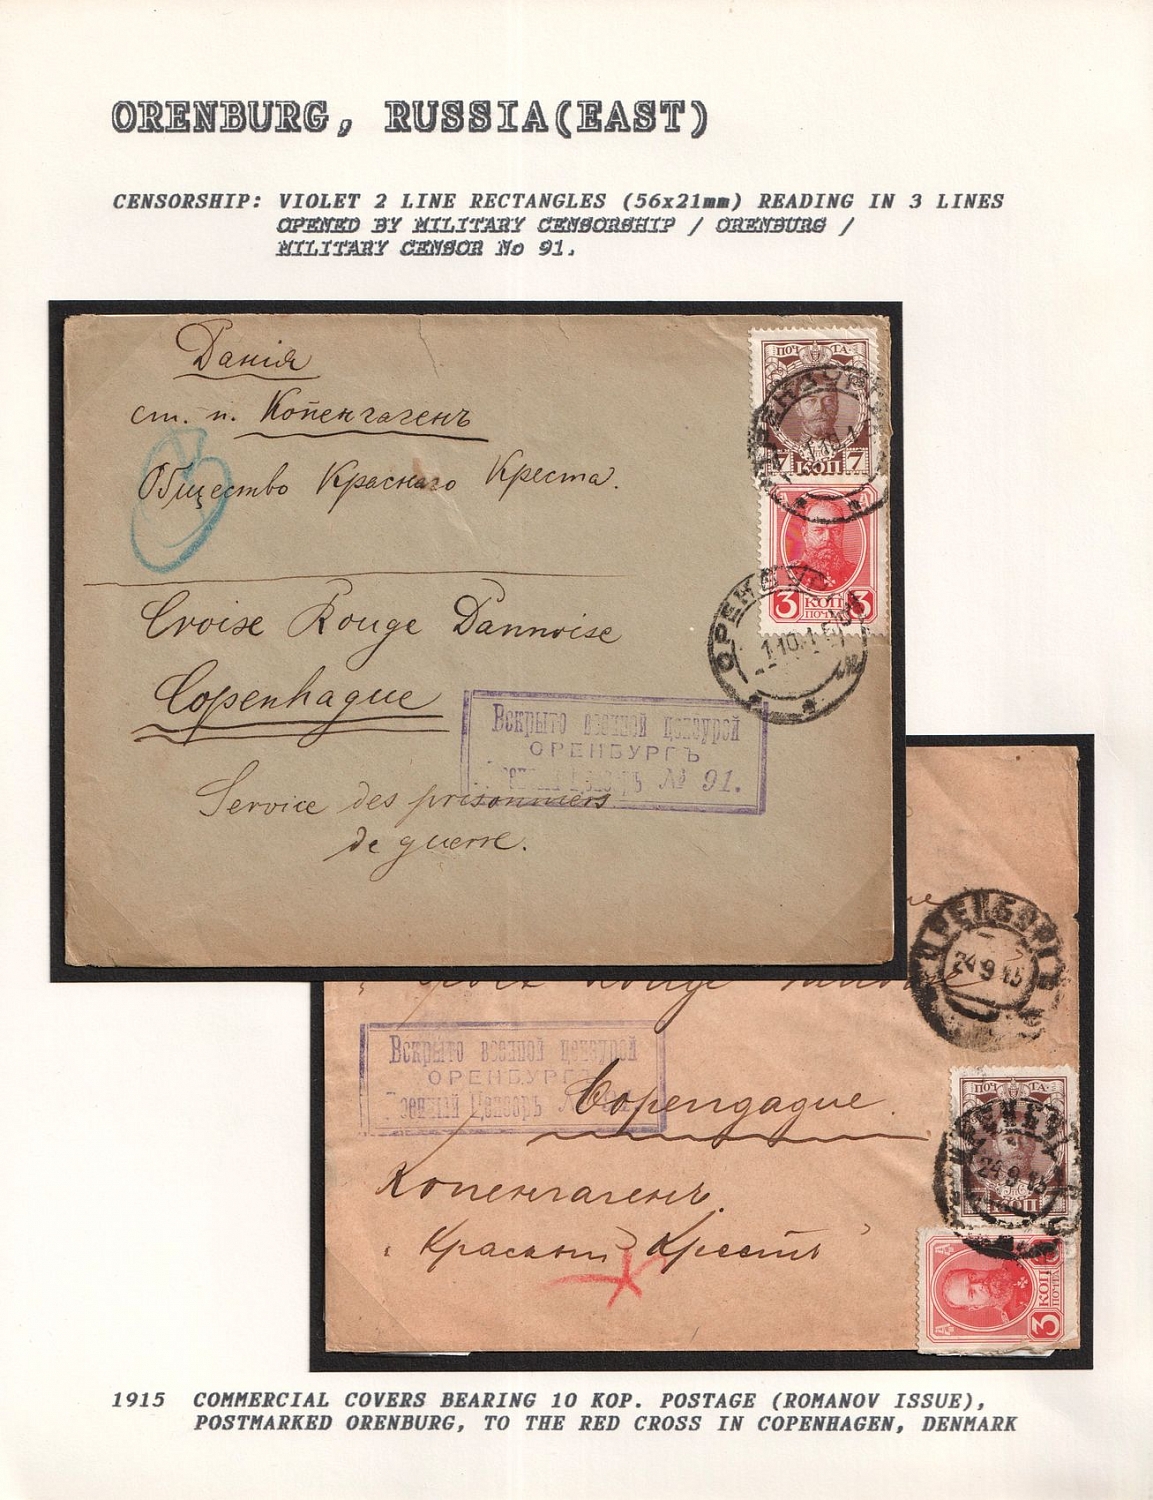 ORENBURG, RUSSIA(EAST)
CENSORSHIP: VIOLET 2 LINE RECTANGLES (56x21mm) READING IN 3 LINES
OPENED BY MILITARY CENSORSHIP / ORENBURG /
MILITARY CENSOR No 91.
Данія
ст. п. Копенгагенъ
Общество Краснаго Креста.
Croise Rouge Dannoise
Copenhague
Service des prisonniers
de guerre.
ПОЧТА
7 КОП 7
3 КОП 3
ОРЕНБУРГЪ
1 10 1
Вскрыто военной цензурой
ОРЕНБУРГЪ
Военный Цензоръ № 91.
ОРЕНБУРГЪ
24 9 15
Rouge
Вскрыто военной цензурой
ОРЕНБУРГЪ
Военный Цензоръ № 91
Copengague.
Копенгагенъ.
„Красный Крестъ"
ПОЧТА
ОРЕНБУРГ
24 9 15
КОП
3 КОП
1915 COMMERCIAL COVERS BEARING 10 KOP. POSTAGE (ROMANOV ISSUE),
POSTMARKED ORENBURG, TO THE RED CROSS IN COPENHAGEN, DENMARK